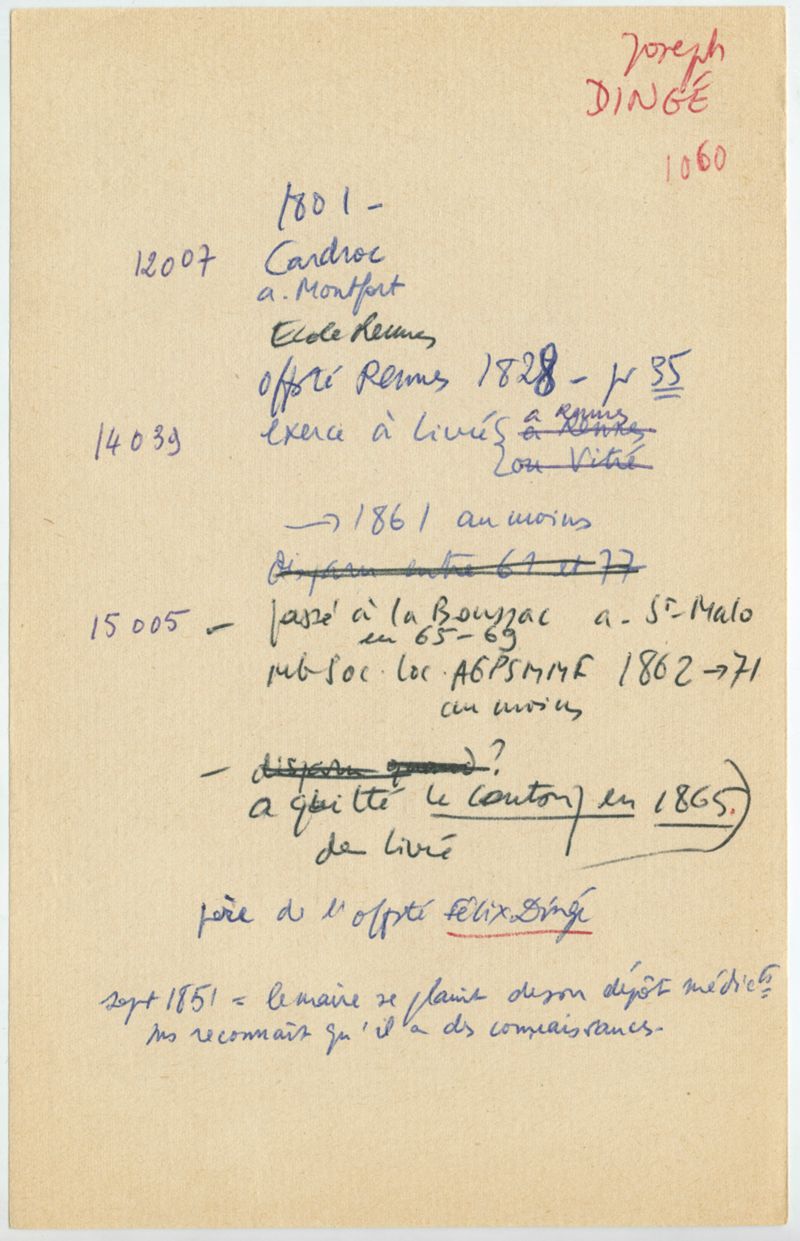 Joseph
DINGÉ
1060
1801 -
12007 Cardroc
a. Montfort
Ecole Rennes
offté Rennes 1828 - pr 35
14039 exerce à Livré a Rennes
a Rennes
ou Vitré
→ 1861 au moins
disparu entre 61 et 77
15005 - passé à la Boussac a. St-Malo
en 65-69
mb Soc. loc. AGPSMMF 1862 → 71
au moins
- disparu quand ?
a quitté le canton en 1865.
de Livré
père de l'offté Félix Dingé
sept 1851 = le maire se plaint de son dépôt médicts
ms reconnaît qu'il a des connaissances.